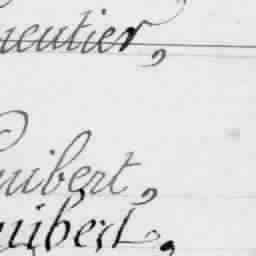 ncutier,
uibert,
uibert.